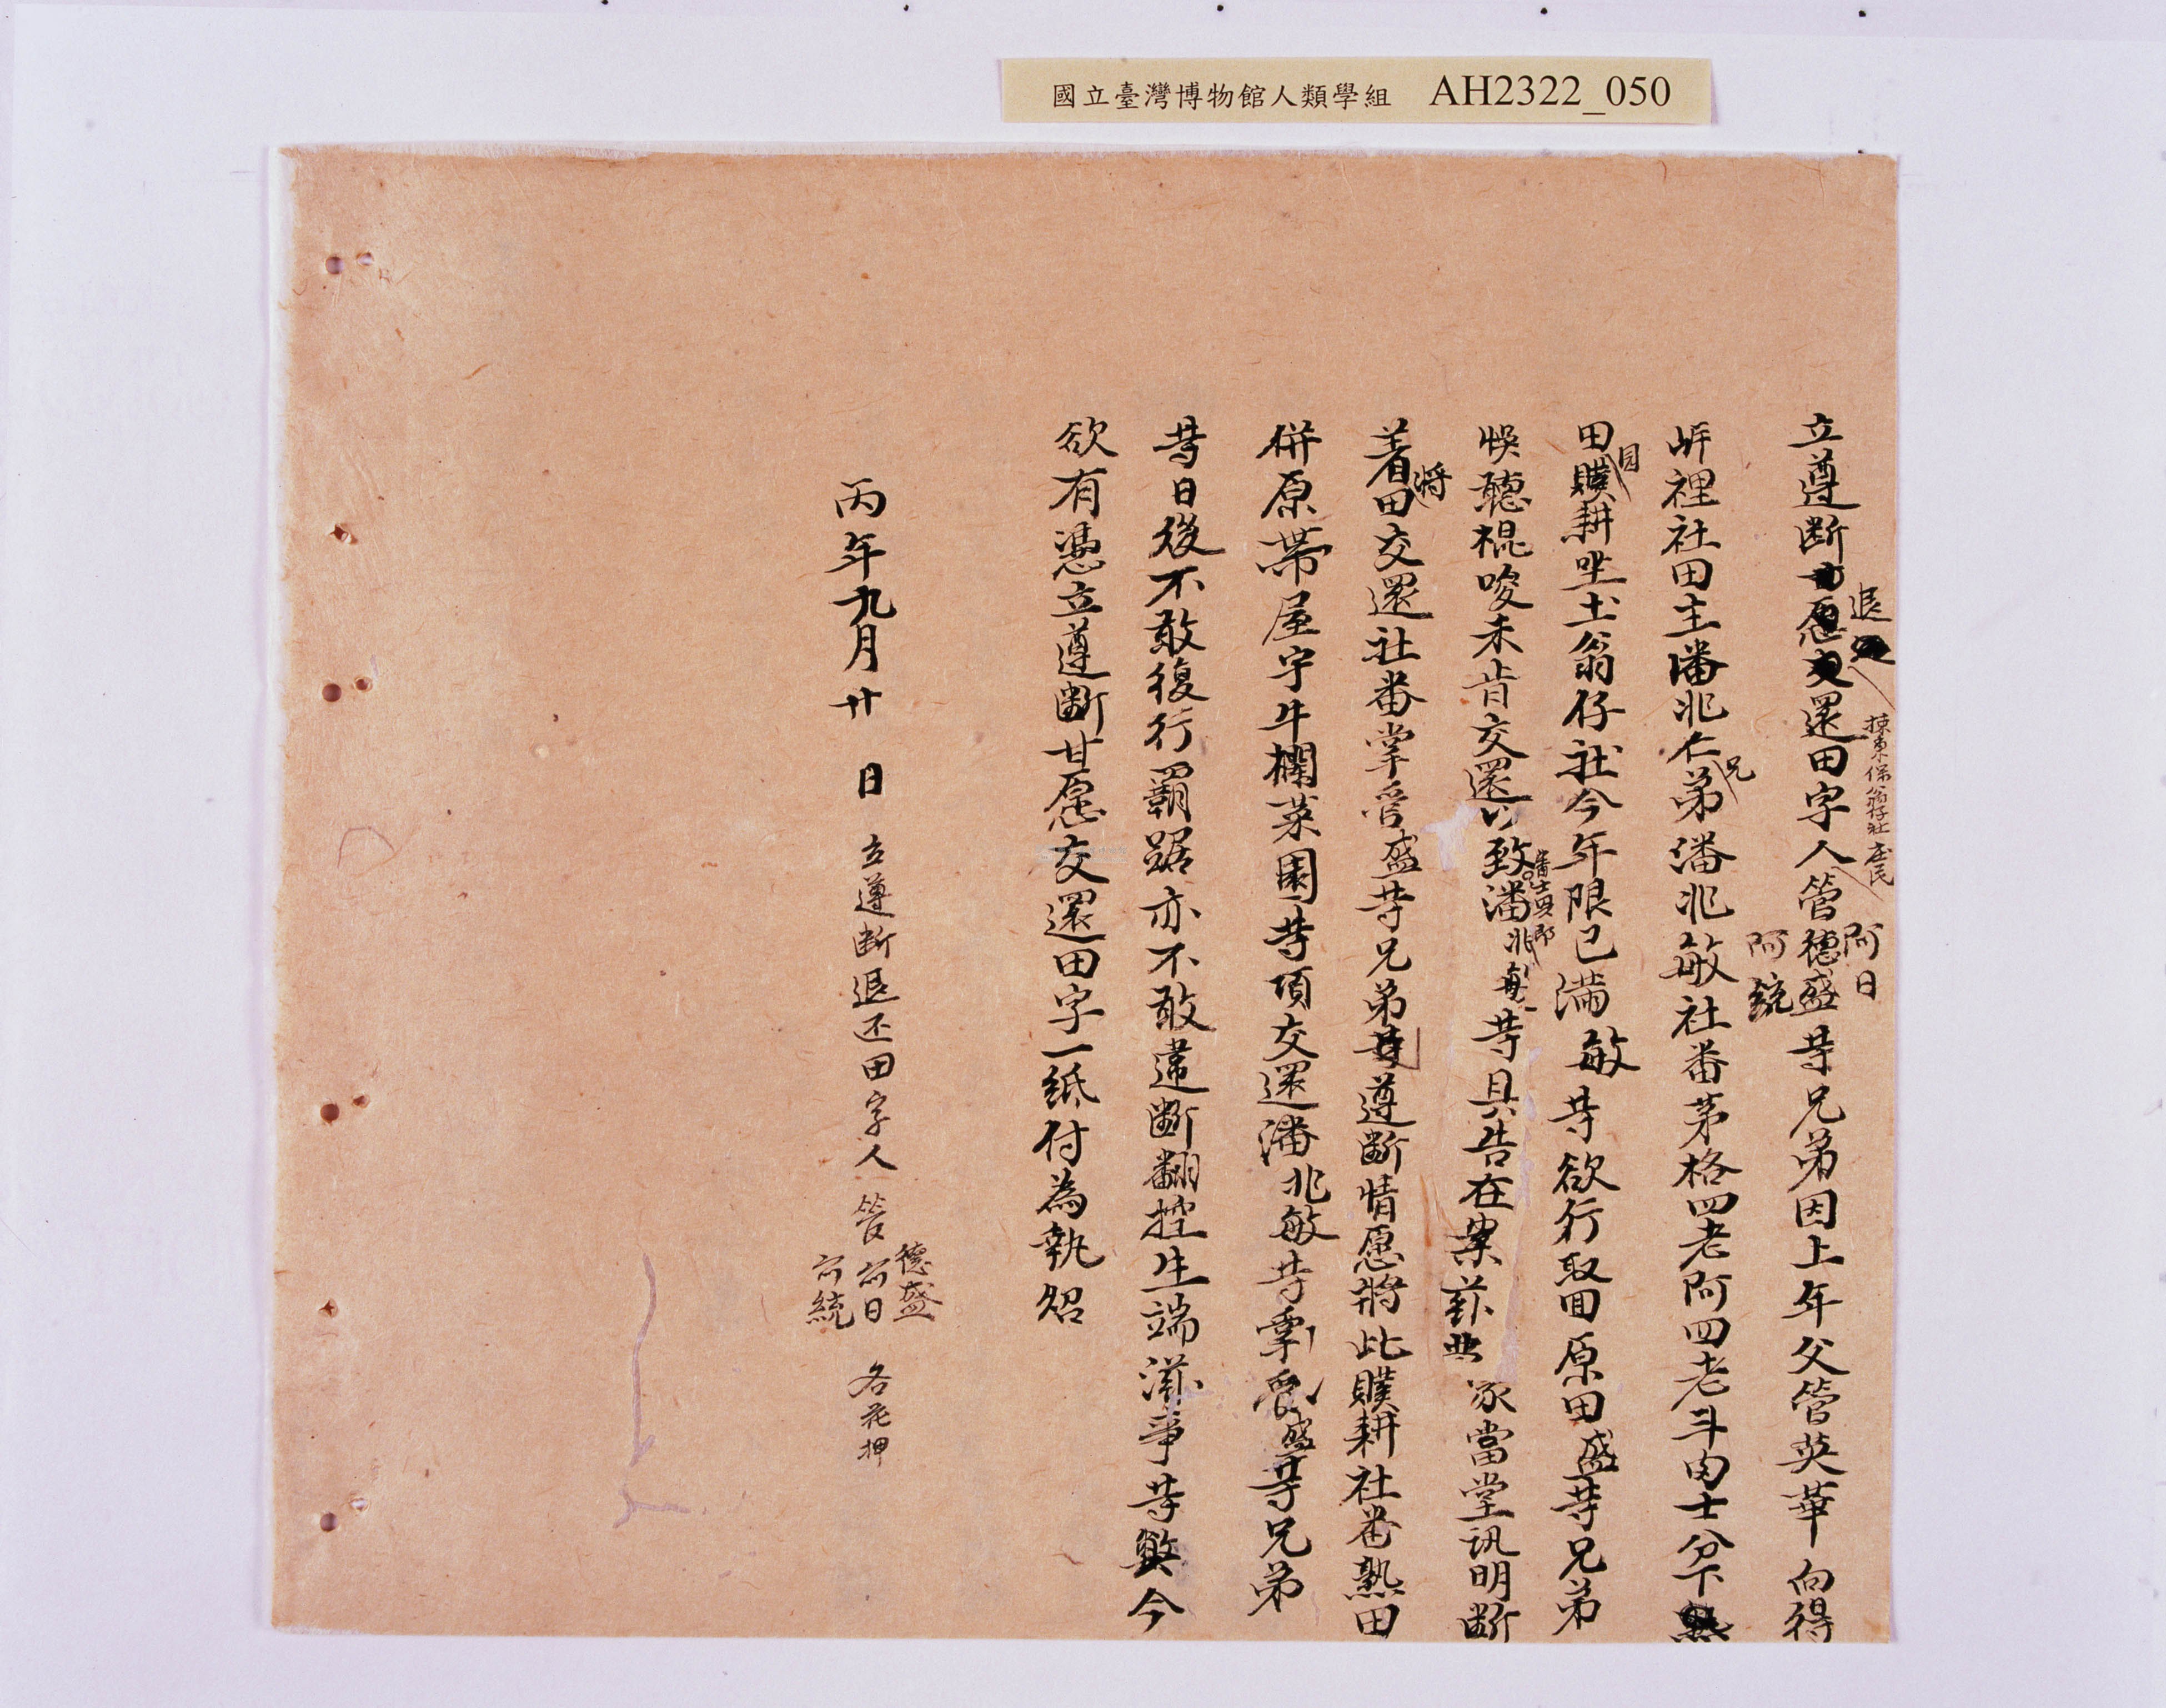 國立臺灣博物館人類學組 AH2322_050
立遵断愿退還田字人
揀東保翁仔社庄民
管德盛阿日阿統等兄弟因上年父管英華向得
岸裡社田主潘兆仁兄弟潘兆敏社番茅格四老阿四老斗肉士分下熟
田贌耕坐土翁仔社今年限已滿敏等欲行取回原田盛等兄弟
悞聽棍唆未肯交還以致潘兆敏等具告在案茲 家當堂訊明断
着將田交還社番掌管盛等兄弟遵断情愿將此贌耕社番熟田
併原帶屋宇牛欄菜園等項交還潘兆敏等掌管盛等兄弟
等日後不敢復行霸踞亦不敢違断翻控生端滋爭等弊今
欲有憑立遵断甘愿交還田字一紙付為執炤
丙年九月廿 日 立遵断退还田字人管德盛阿日阿統 各花押